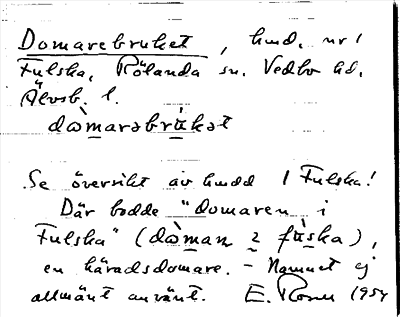 Domarebruket, hmd. nr 1
Fulska, Rölanda sn. Vedbo hd.
Älvsb. l.
dòmarəbrùkət
Se översikt av hmdd 1 Fulska!
Där bodde "domaren i
Fulska" (dòman i fùska),
en häradsdomare. - Namnet ej
allmänt använt. E. Rosen 1954